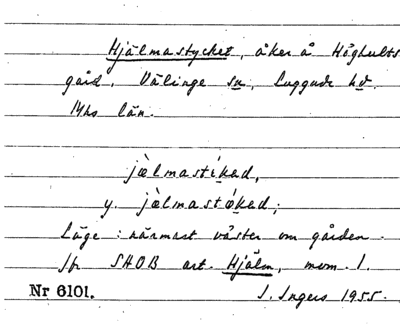 Hjälmastycket, åker å Höghults
gård, Välinge sn, Luggude hd.
Mhs län.
jælmastikad,
y. jælmastøkad;
Läge: närmast väster om gården.
Jfr SHOB art. Hjälm, mom. 1.
Nr 6101. I. Ingers 1955.